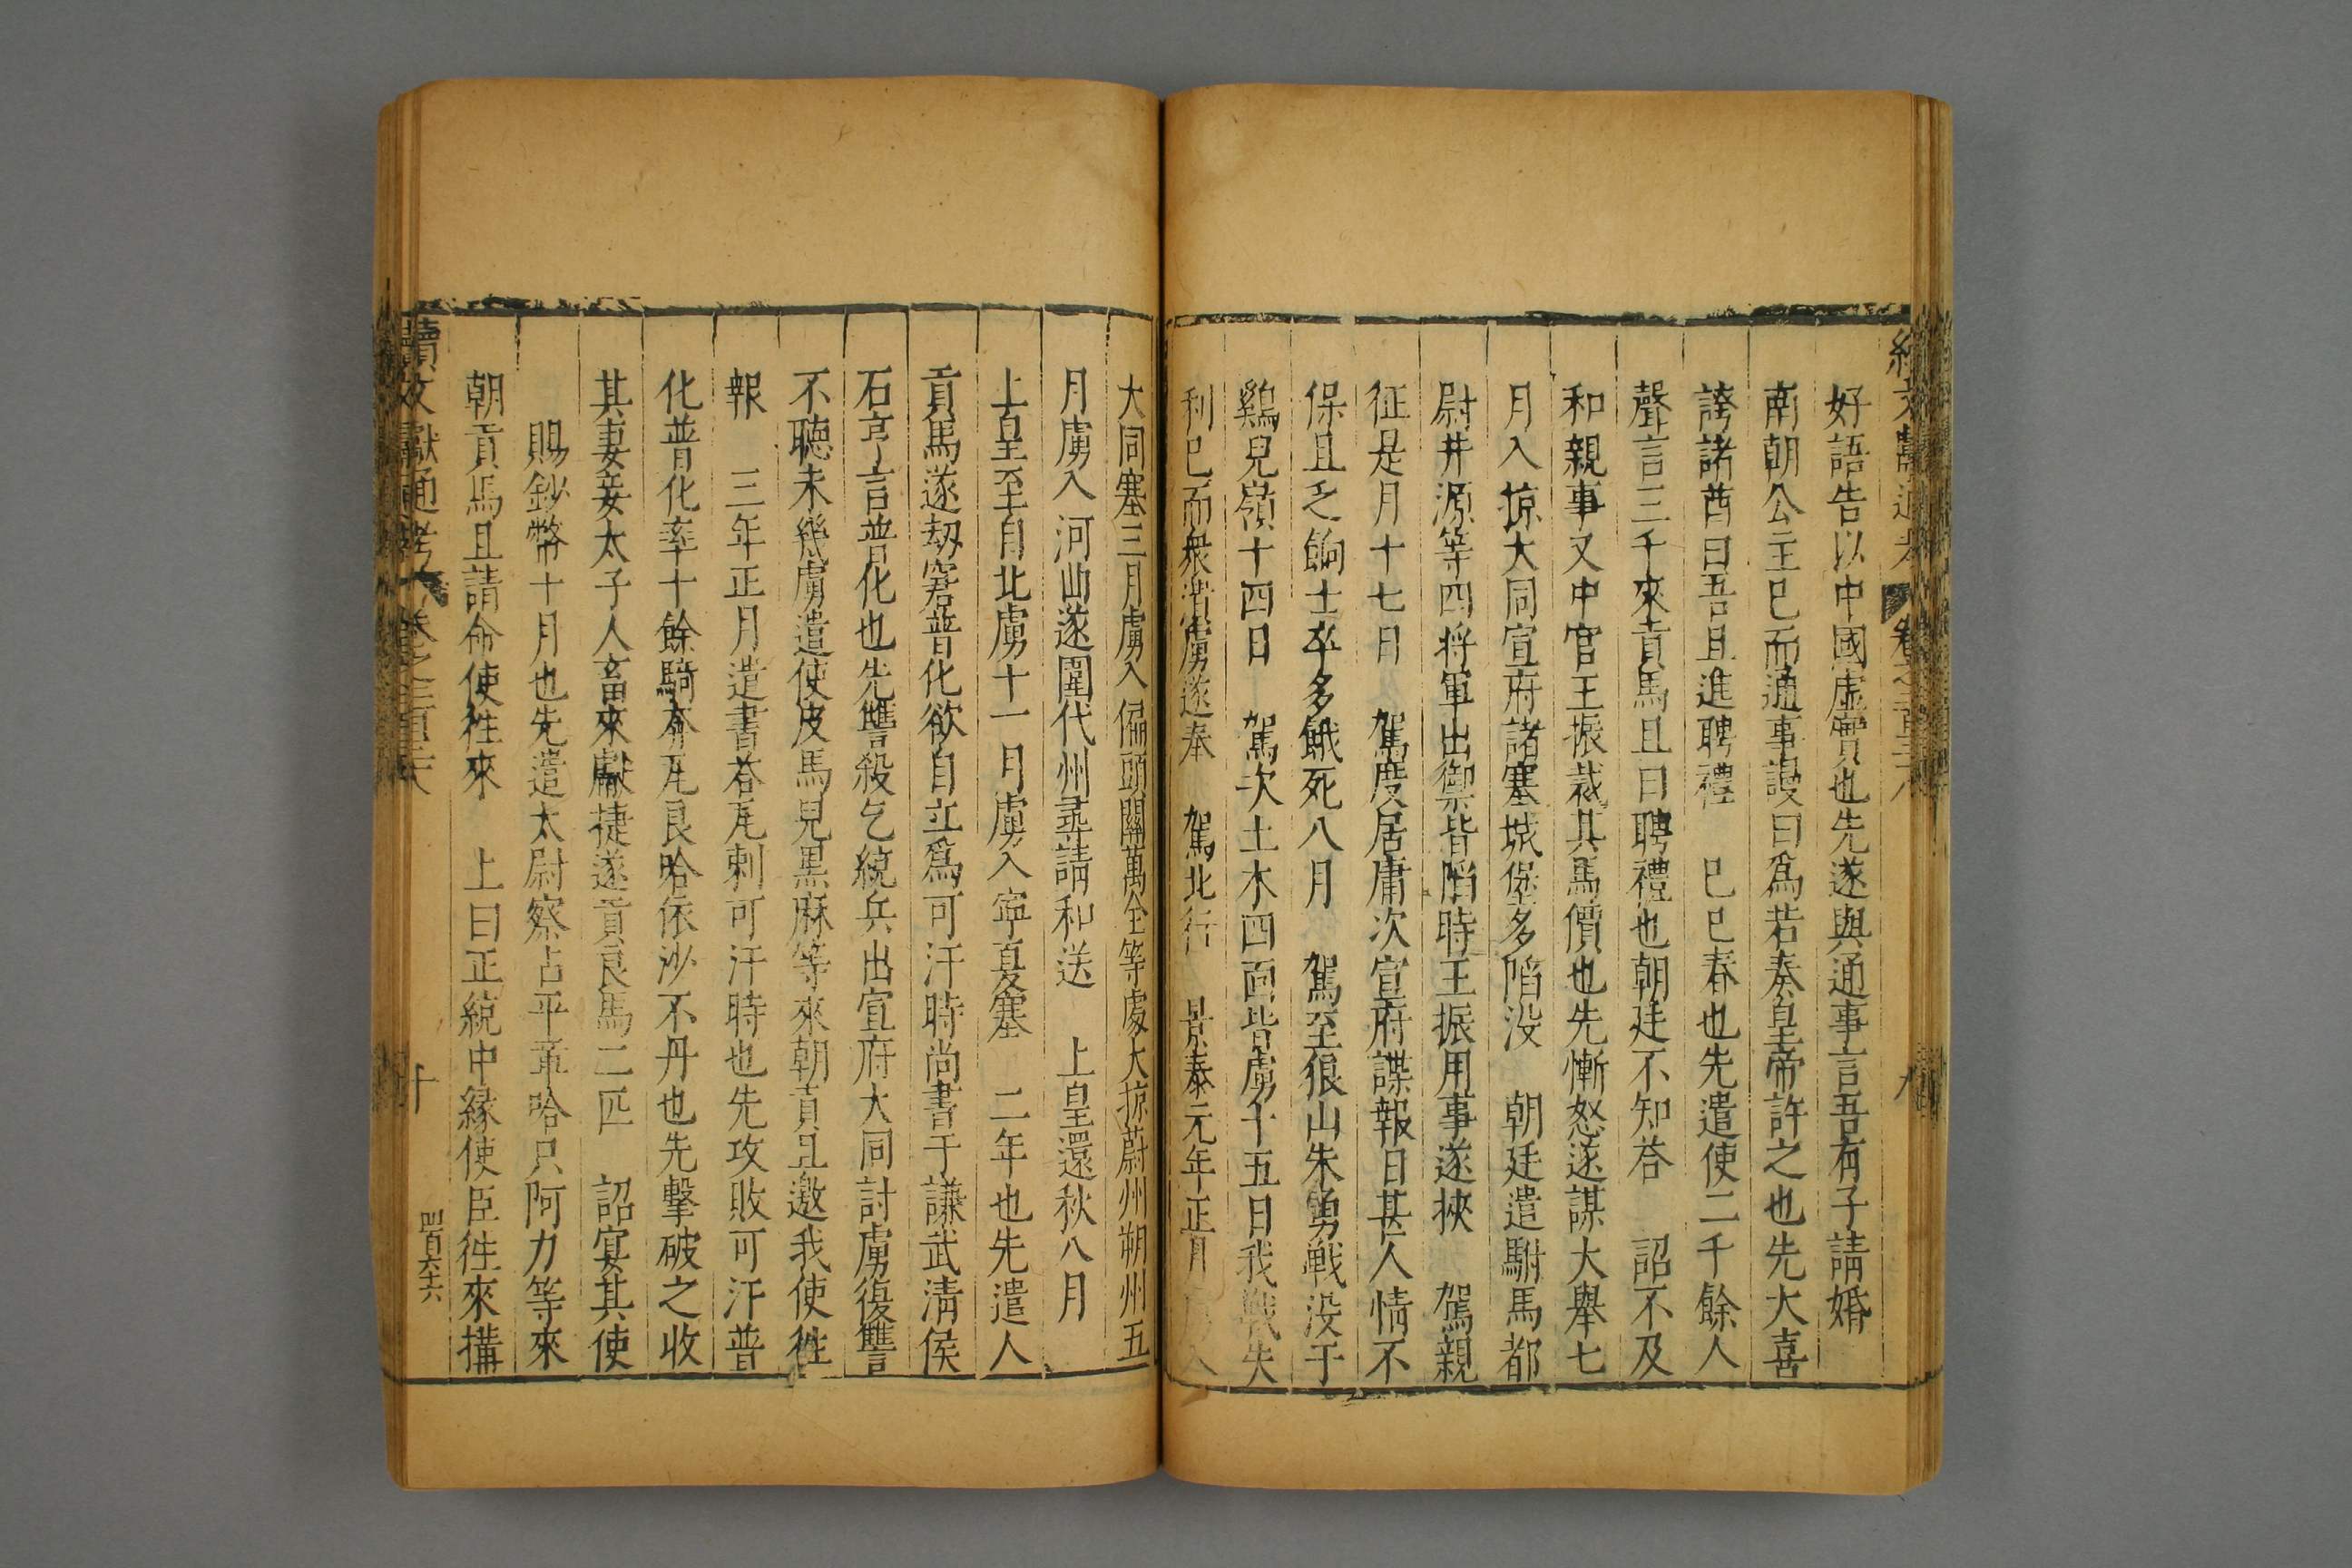 好語告以中國虛實也先遂與通事言吾有子請婚
南朝公主已而通事謾曰爲若奏皇帝許之也先大喜
誇諸酋曰吾且進聘禮 己巳春也先遣使二千餘人
聲言三千來貢馬且曰聘禮也朝廷不知荅 詔不及
和親事又中官王振裁其馬價也先慚怒遂謀大舉七
月入掠大同宣府諸塞城堡多陷没 朝廷遣駙馬都
尉井源等四將軍出禦皆陷時王振用事遂挾 駕親
征是月十七日 駕度居庸次宣府諜報日甚人情不
保且乏餉士卒多餓死八月 駕至狼山朱勇戰没于
鷄兒嶺十四日 駕次土木四面皆虜十五日我戰失
利已而衆潰虜遂奉 駕北行 景泰元年正月 入
大同塞三月虜入偏頭關萬全等處大掠蔚州朔州五
月虜入河曲遂圍代州尋請和送 上皇還秋八月
上皇至自北虜十一月虜入寧夏塞 二年也先遣人
貢馬遂劫窘普化欲自立爲可汗時尚書于謙武清侯
石亨言普化也先讎殺乞統兵出宣府大同討虜復讐
不聽未幾虜遣使皮馬兒黑麻等來朝貢且邀我使徃
報 三年正月遣書荅瓦剌可汗時也先攻敗可汗普
化普化率十餘騎奔兀良哈依沙不丹也先擊破之收
其妻妾太子人畜來獻捷遂貢良馬二匹 詔宴其使
賜鈔幣十月也先遣太尉察占平章哈只阿力等來
朝貢馬且請命使徃來 上曰正統中緣使臣徃來搆
續文獻通考 卷之二百三十六 十